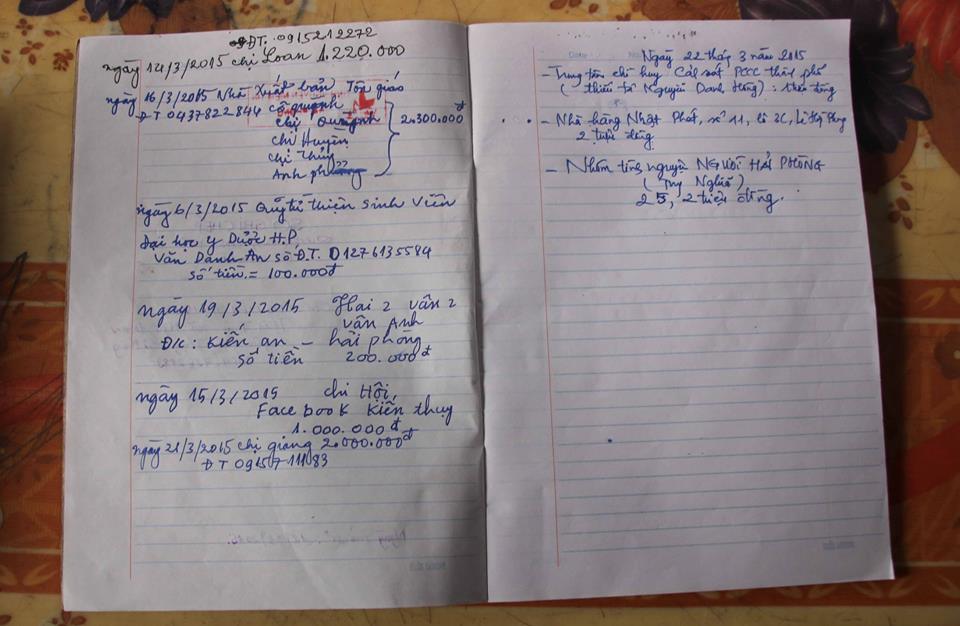 ĐT. 0915212272
ngày 14/3/2015 chị Loan 1.220.000
ngày 16/3/2015 Nhà Xuất bản Tôn giáo
ĐT 0437822844 cô quỳnh
chị Quỳnh
chị Huyền
chị Thủy
Anh
2.300.000đ
ngày 6/3/2015 Quỹ từ thiện sinh viên
Đại học y Dược H.P
Văn Danh An số Đ.T. 01276135584
số tiền = 100.000đ
ngày 19/3/2015 Hai 2 vân 2
vân Anh
Đ/c: Kiến an - hải phòng
Số tiền 200.000đ
ngày 15/3/2015 chi Hội,
Face book Kiến thụy
1.000.000đ
ngày 21/3/2015 chị giang 2.000.000đ
ĐT 0915711183
Ngày 22 tháng 3 năm 2015
- Trung tâm chỉ huy Cảnh sát PCCC thành phố
(thiếu tá Nguyễn Danh Hùng):
- Nhà hàng Nhật Phát, số 11, lô 2C, Lê Hồng Phong
2 triệu đồng
- Nhóm tình nguyện NGƯỜI HẢI PHÒNG
(Trung Nghĩa)
25, 2 triệu đồng.